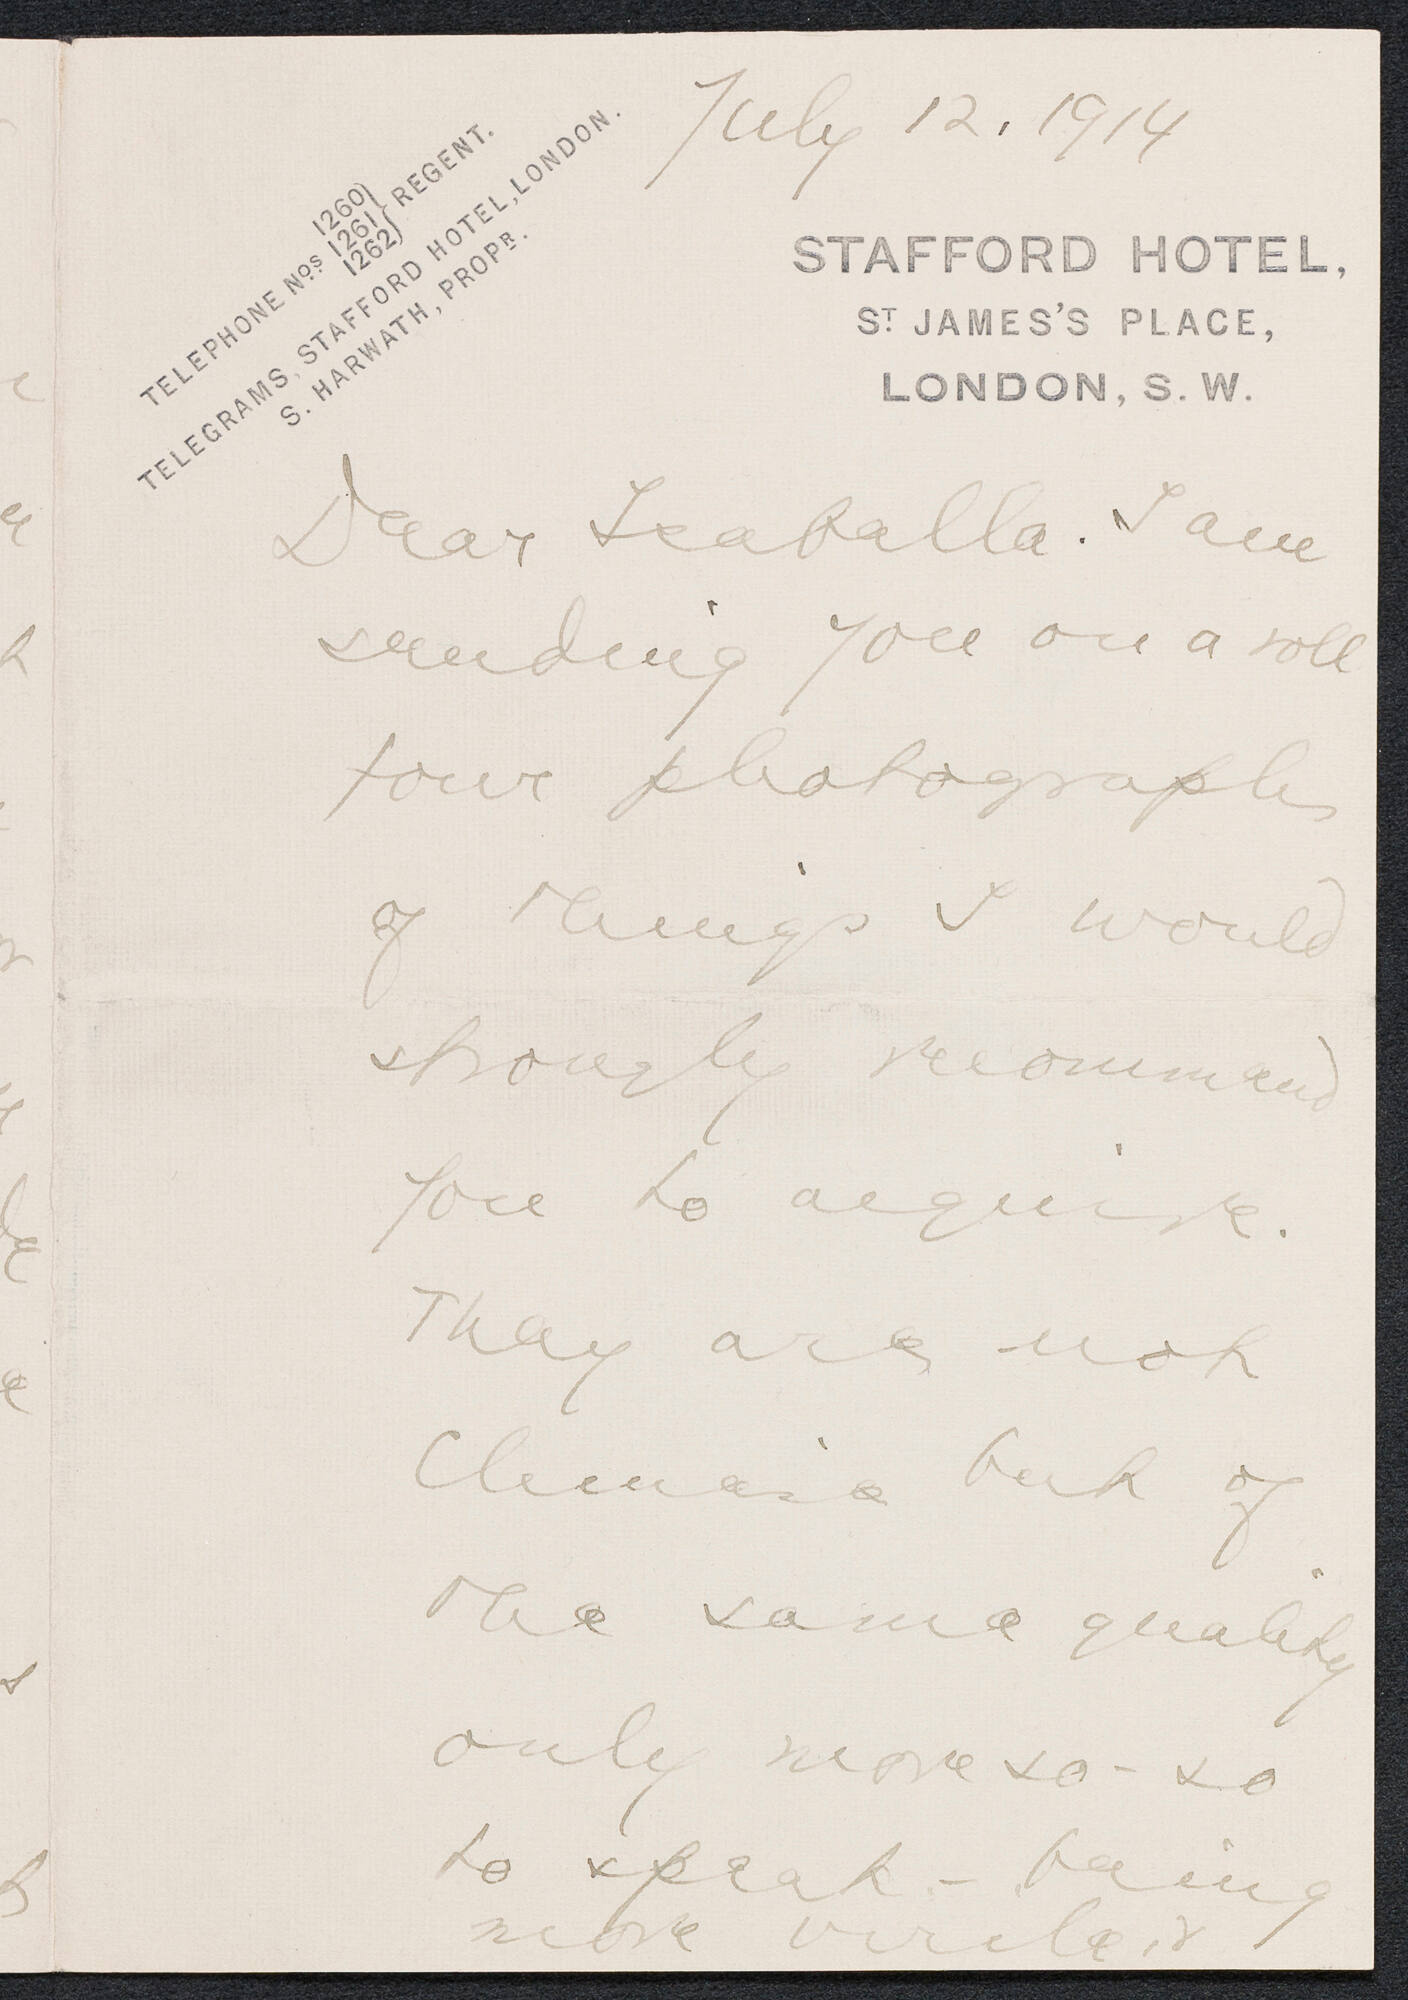 July 12, 1914
TELEPHONE Nos 1260 1261 1262 REGENT.
TELEGRAMS, STAFFORD HOTEL, LONDON.
S. HARWATH, PROPR.
STAFFORD HOTEL,
ST JAMES'S PLACE,
LONDON, S. W.
Dear Isabella. I am
sending you on a roll
four photographs
of things I would
strongly recommend
you to acquire.
They are not
Chinese but of
the same quality
only more so - so
to speak - being
more